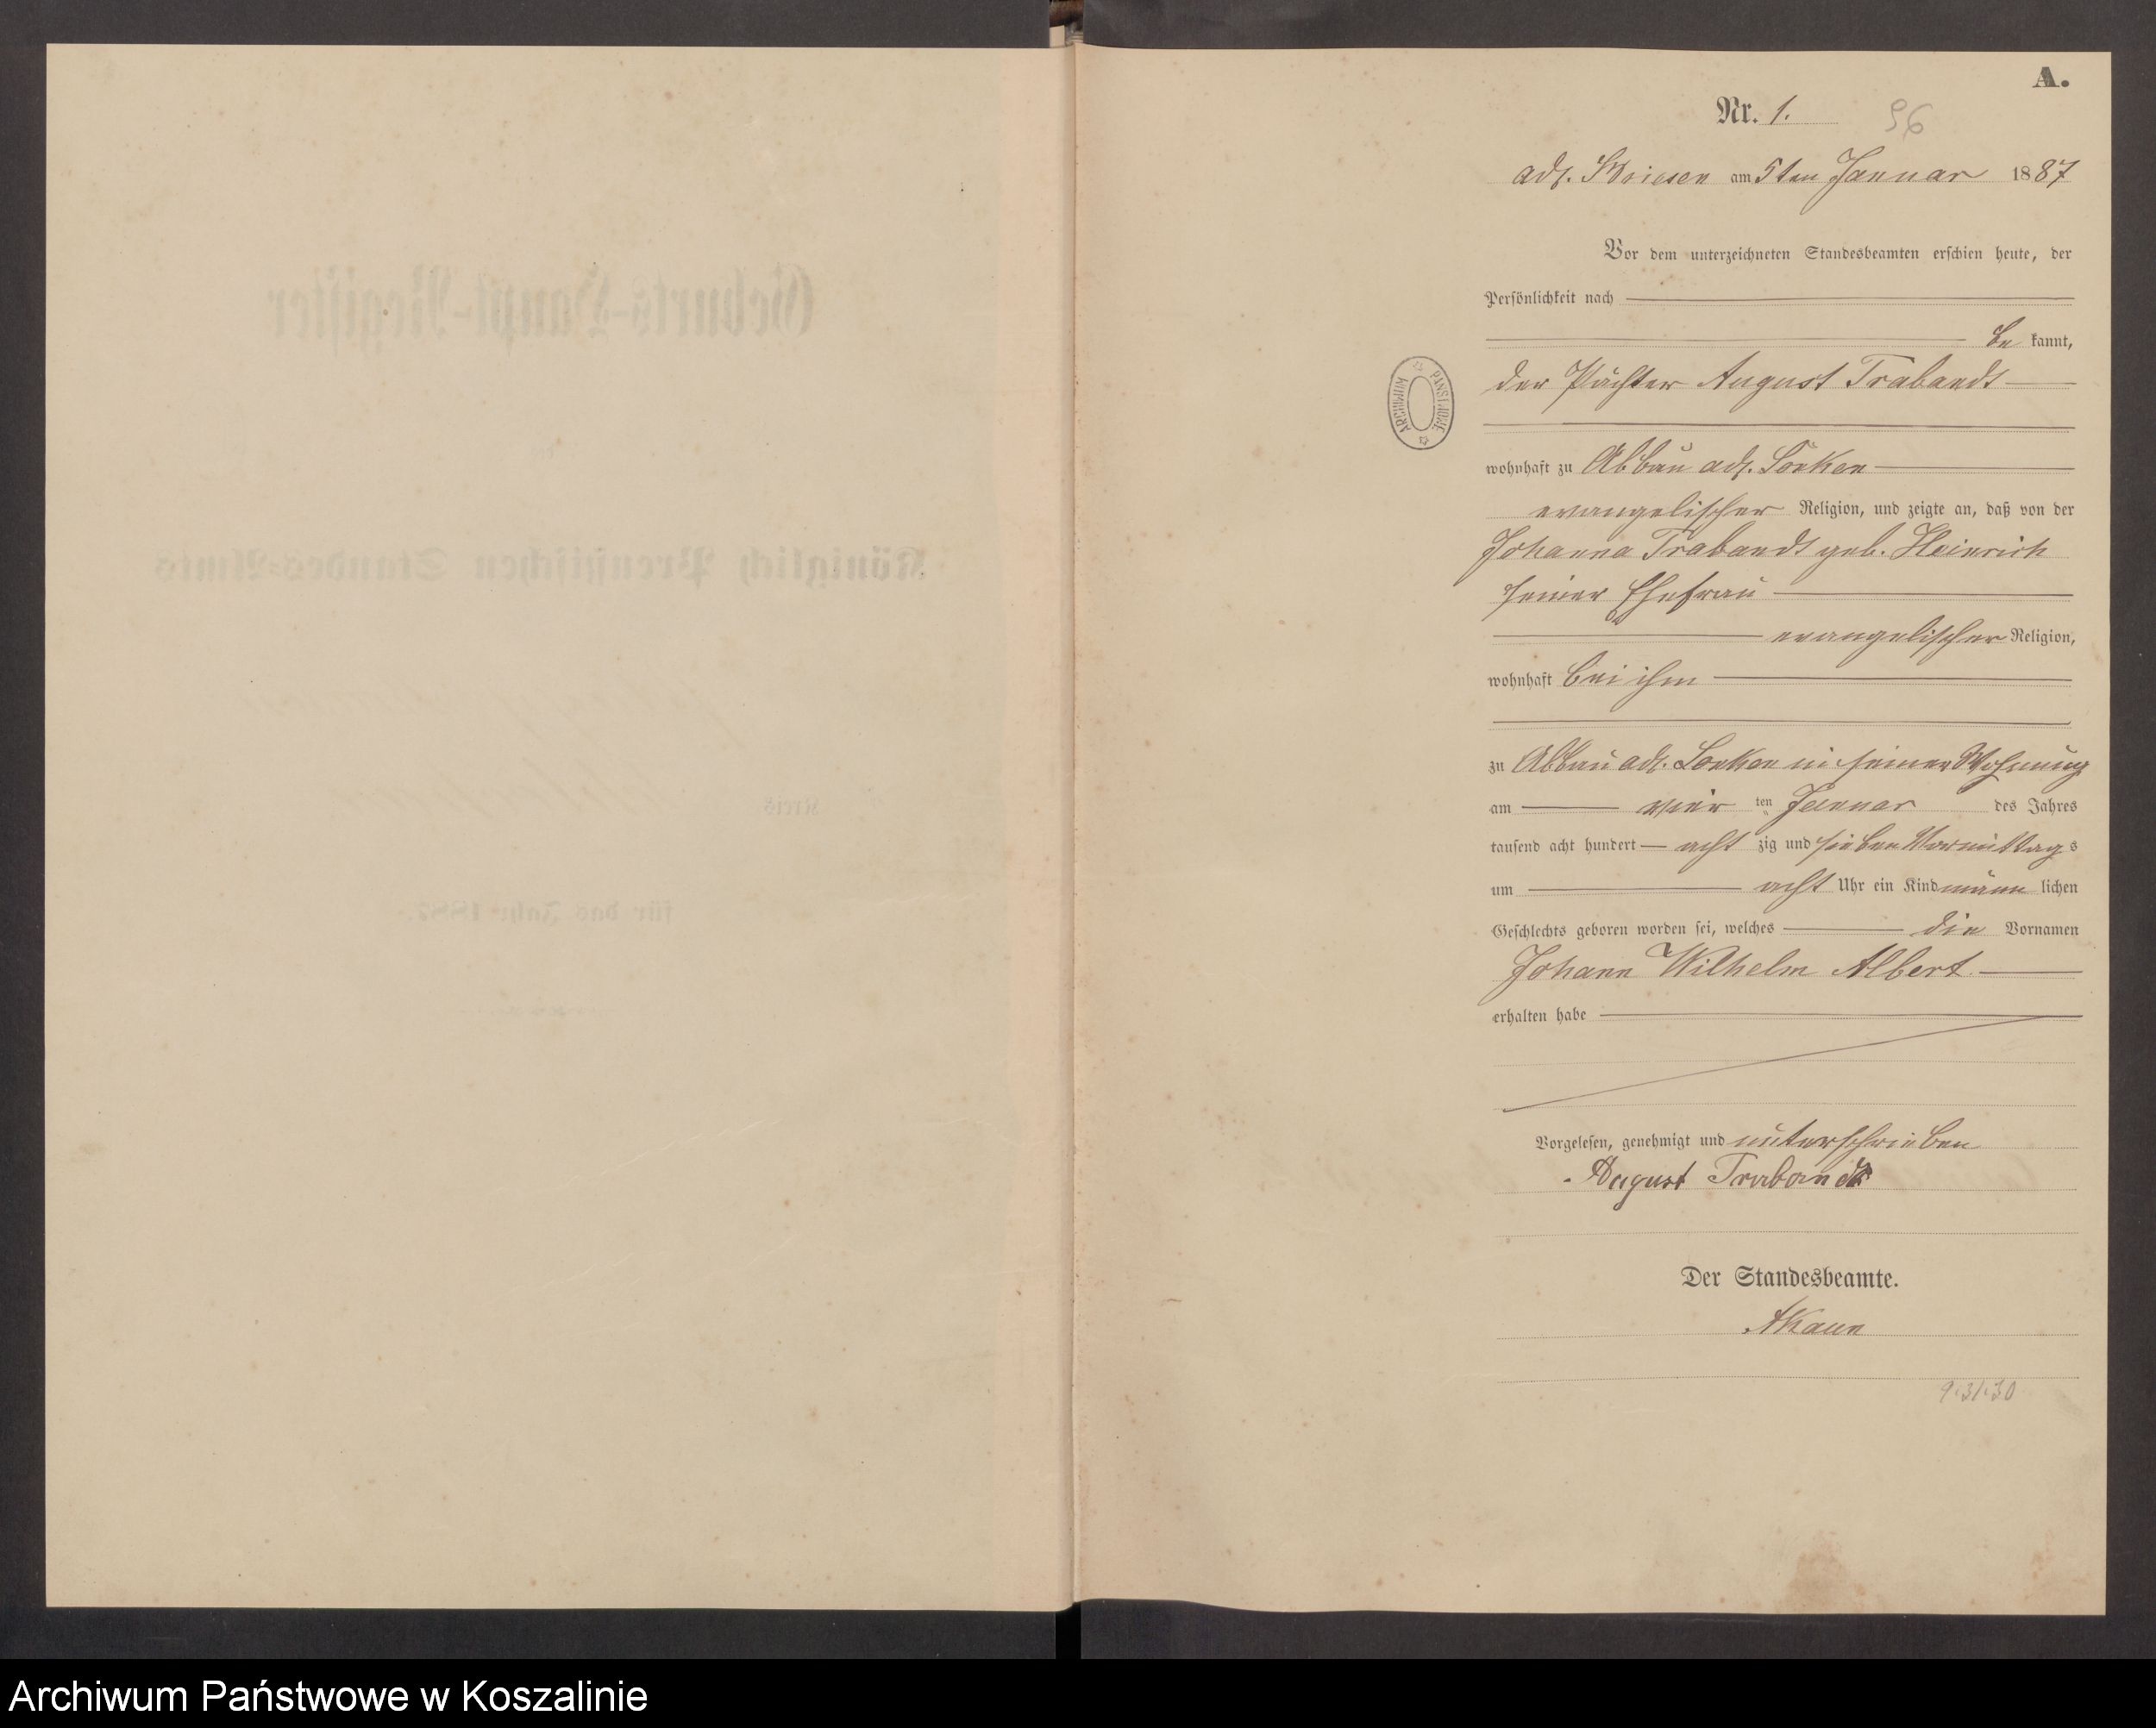 A.
Nr. 1.
96
adl. Briesen am 5ten Januar 1887
Vor dem unterzeichneten Standesbeamten erschien heute, der
Persönlichkeit nach
be kannt,
der Pächter August Trabandt
ARCHIWUM PAŃSTWOWE
wohnhaft zu Abbau adl.
evangelischer Religion, und zeigte an, daß von der
Johanna Trabandt geb. Heinrich
seiner Ehefrau
evangelischer Religion,
wohnhaft bei ihm
zu Abbau adl. in seiner Wohnung
am vier ten Januar des Jahres
tausend acht hundert acht zig und sieben Vormittags
um acht Uhr ein Kind männ lichen
Geschlechts geboren worden sei, welches die Vornamen
Johann Wilhelm Albert
erhalten habe
Vorgelesen, genehmigt und unterschrieben
August Trabandt
Der Standesbeamte.
9.31.30
Geburts-Haupt-Register
Königlich Preußischen Standes-Amts
Kreis
für das Jahr 1887.
Archiwum Państwowe w Koszalinie